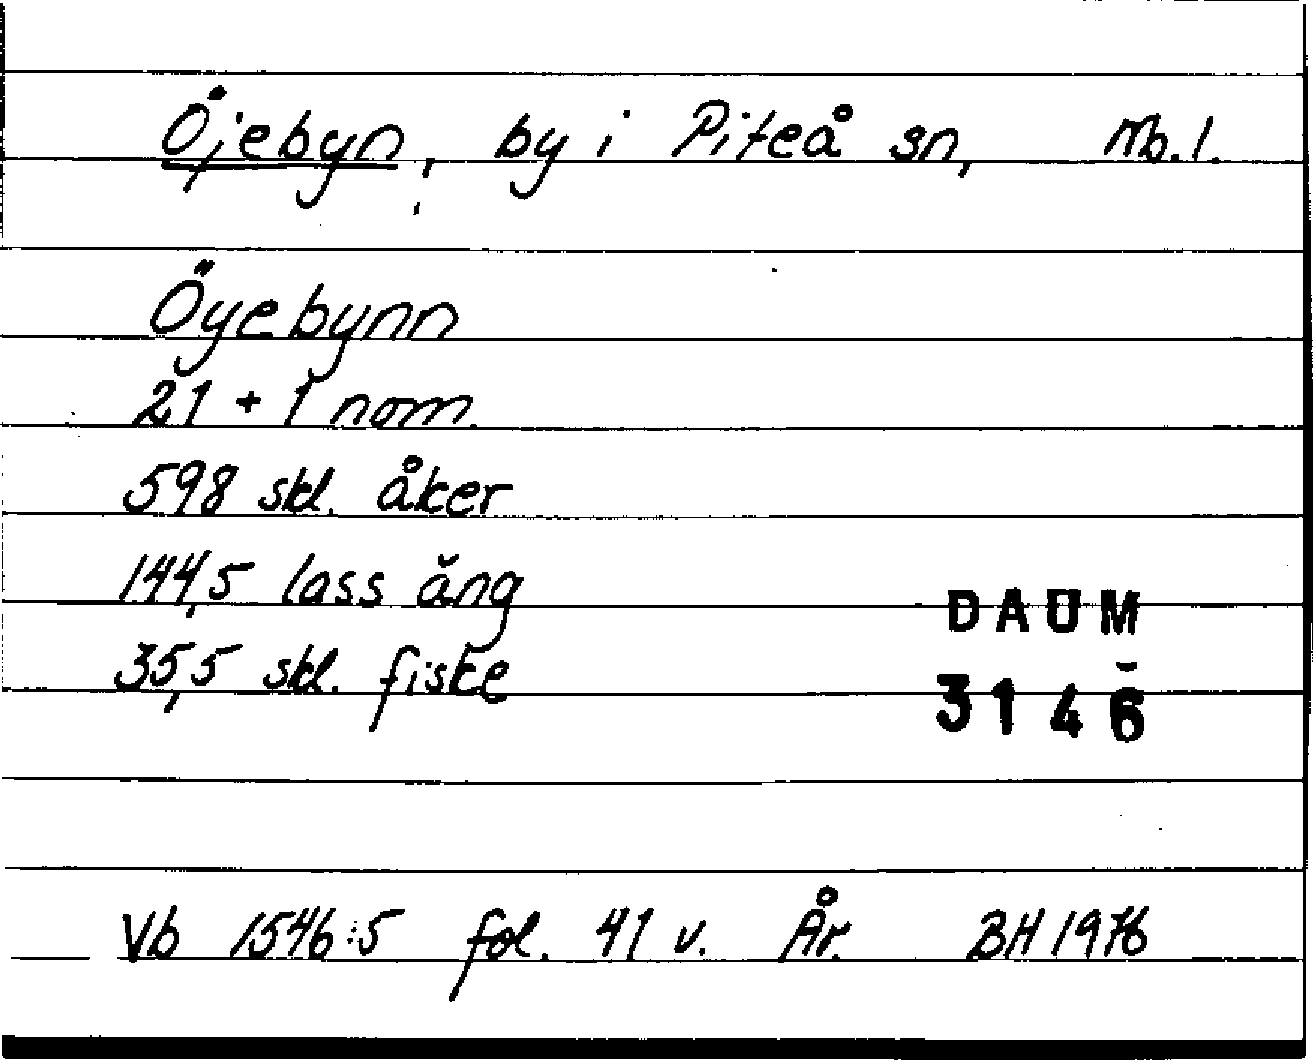 Öjebyn, by i Piteå sn, Nb.l.
Öyebynn
21 + 1 nom.
598 skl. åker
144,5 lass äng
35,5 skl. fiske
DAUM
3146
Vb 1546:5 fol. 41 v. År. BH 1976